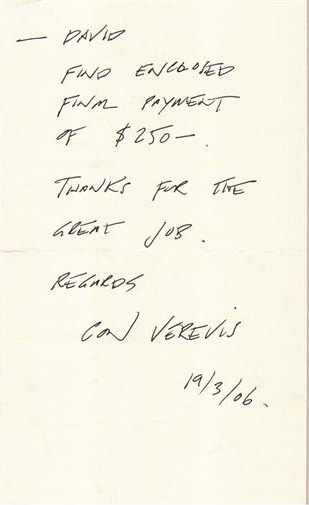 — DAVID
FIND ENCLOSED
FINAL PAYMENT
OF $250—.
THANKS FOR THE
GREAT JOB.
REGARDS
CON VEREVIS
19/3/06.